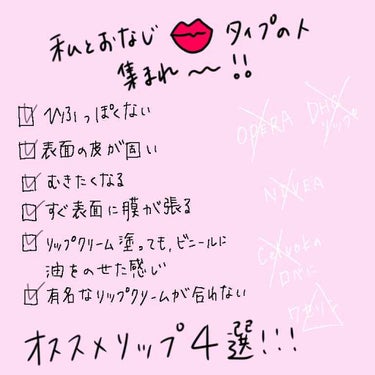 私とおなじ 👄 タイプの人
集まれ〜!!
ひふっぽくない
表面の皮が固い
むきたくなる
すぐ表面に膜が張る
リップクリーム塗っても、ビニールに
油をのせた感じ
有名なリップクリームが合わない
OPERA
DHC
リップも
NIVEA
ワセリン
オススメリップ4選!!!